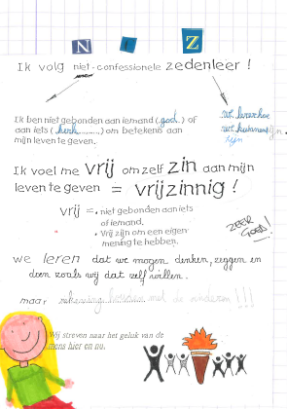 N I Z
Ik volg niet-confessionele zedenleer !
Ik ben niet gebonden aan iemand (god..) of
aan iets (kerk.......) om betekenis aan
mijn leven te geven.
zijn
Ik voel me vrij om zelf zin aan mijn
leven te geven = vrijzinnig !
vrij = • niet gebonden aan iets
of iemand.
• Vrij zijn om een eigen
mening te hebben.
ZEER
GOED!
we leren dat we mogen denken, zeggen en
doen zoals wij dat zelf willen.
maar rekening houden met de anderen !!!
Wij streven naar het geluk van de
mens hier en nu.